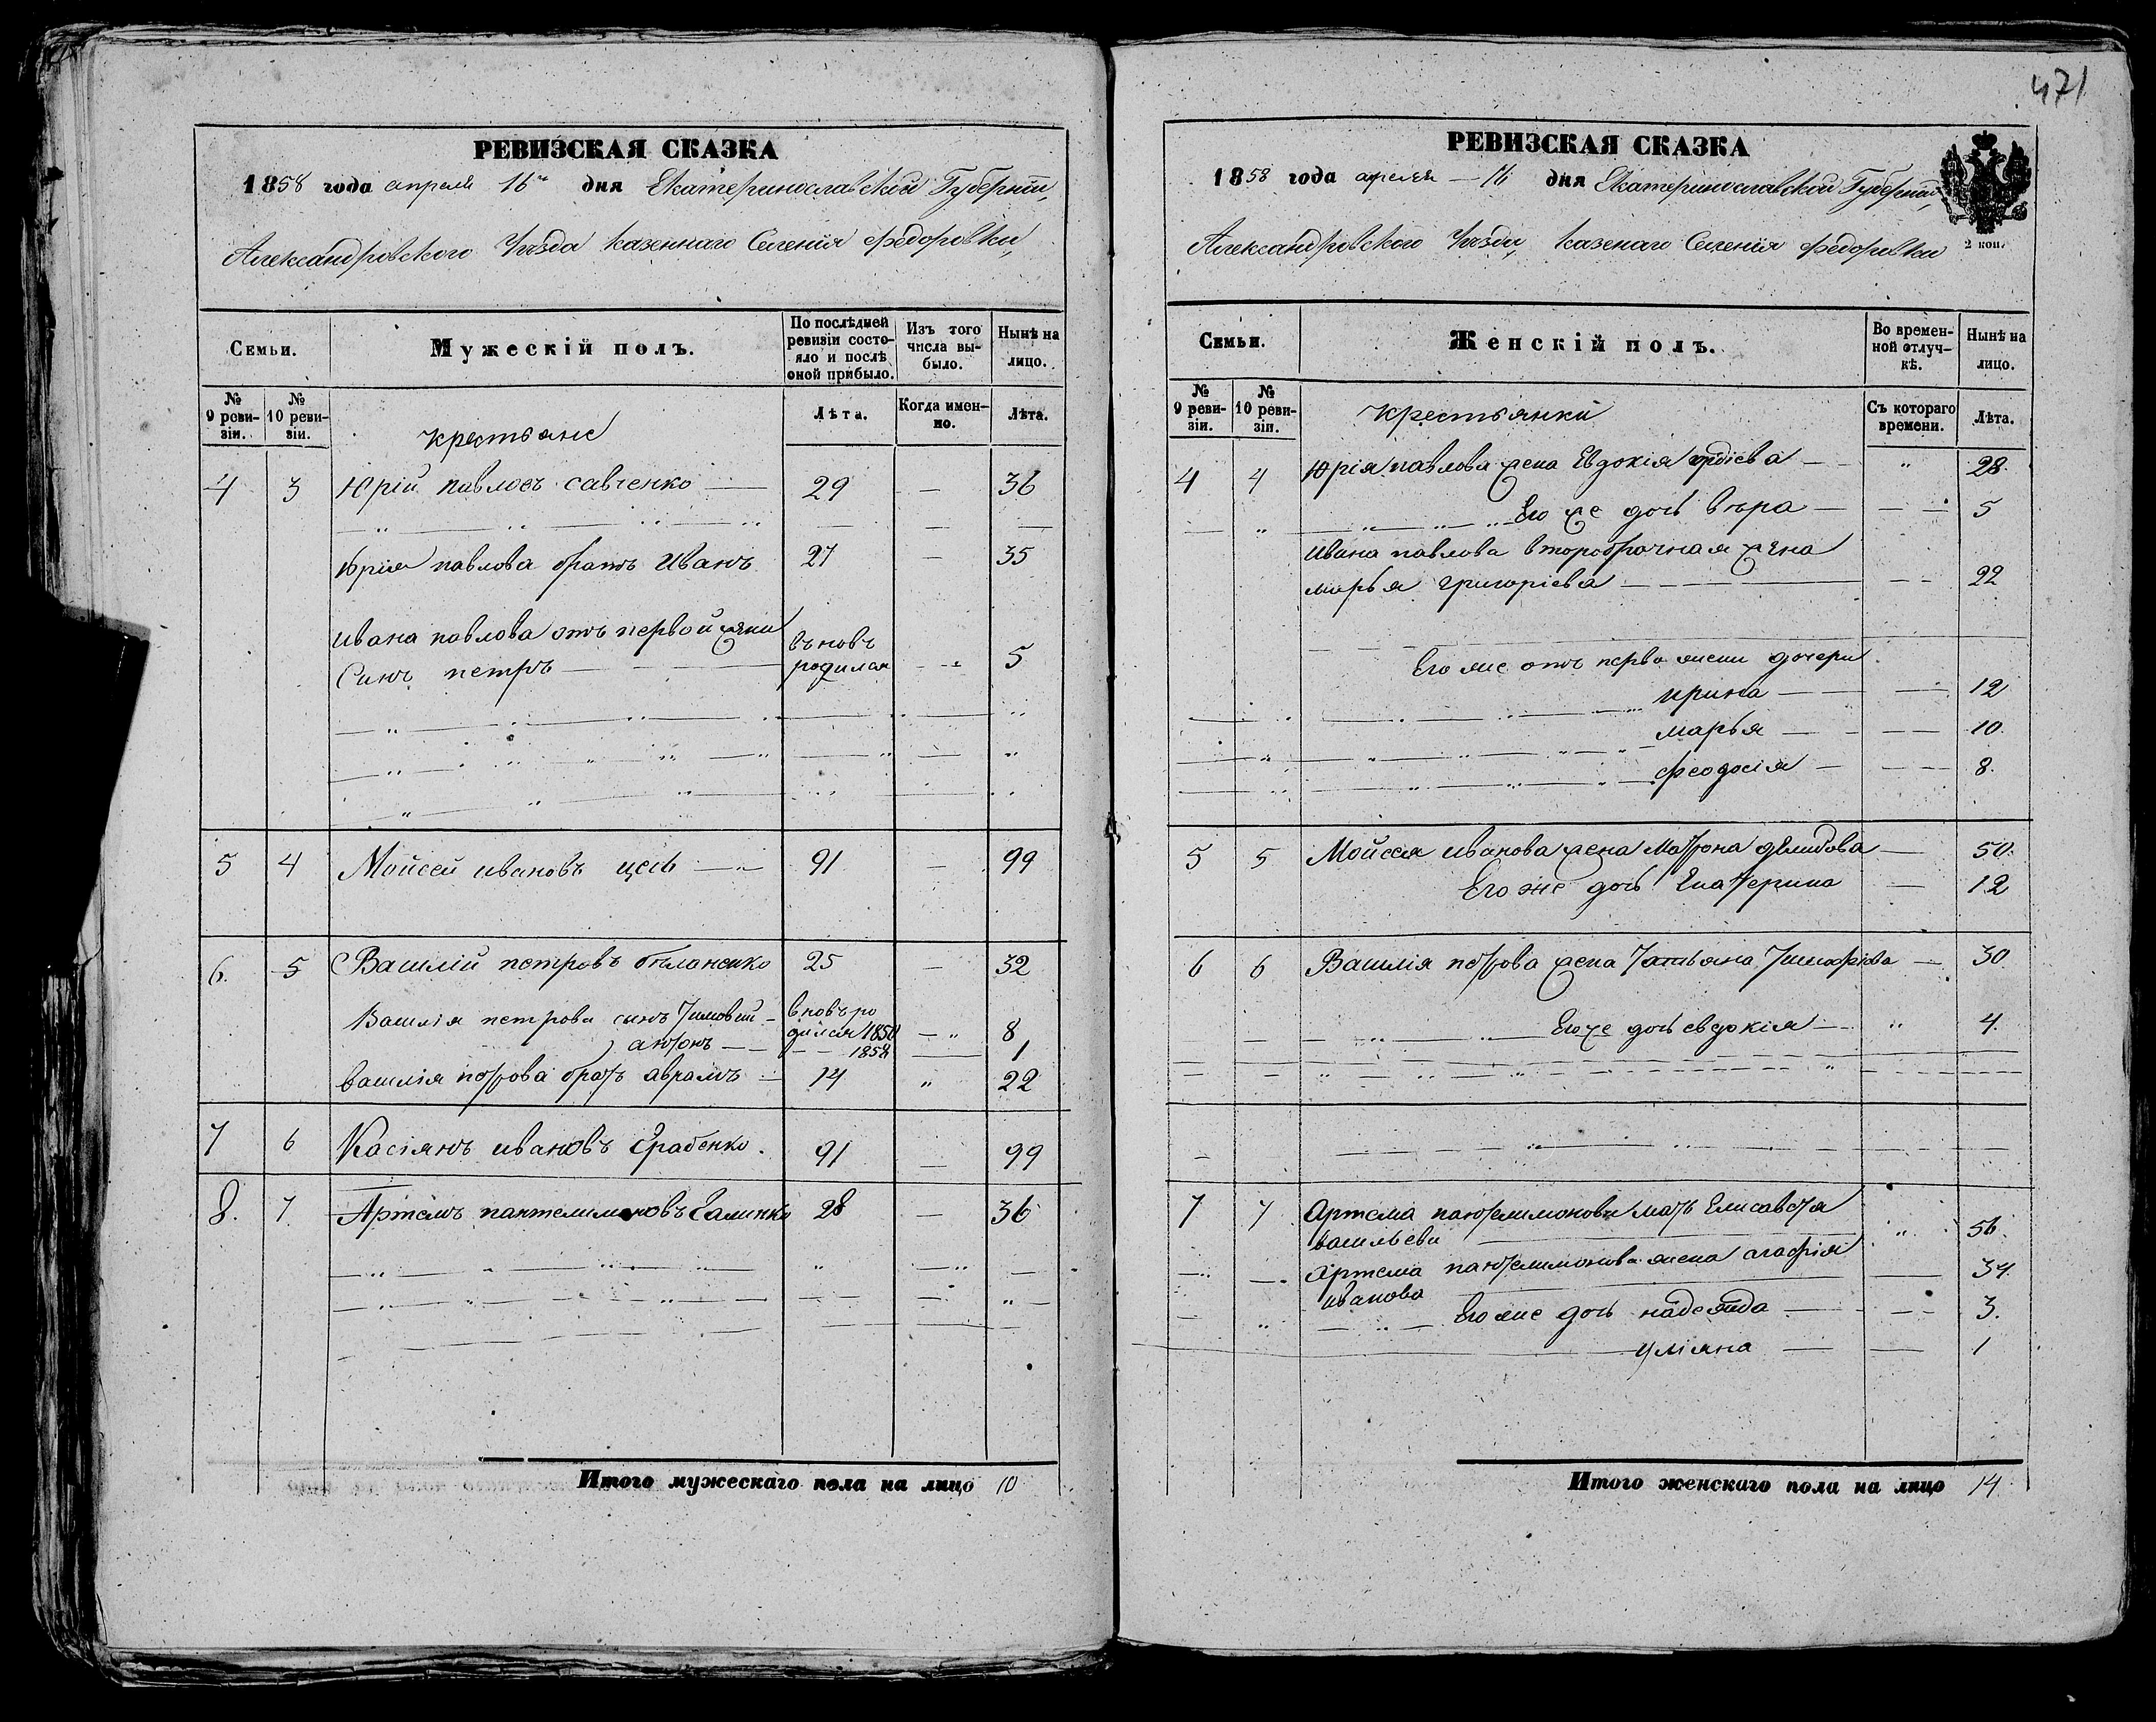 РЕВИЗСКАЯ СКАЗКА
1858 года апреля 16го дня Екатеринославской Губернiи,
Александровского Уѣзда казеннаго Селенiя Федоровки,
Семьи.
Мужескiй полъ.
По послѣдней ревизiи состояло и послѣ оной прибыло.
Изъ того числа выбыло.
Нынѣ на лицо.
№ 9 ревизiи.
№ 10 ревизiи.
Крестьяне
Лѣта.
Когда именно.
Лѣта.
4 3 Юрiй павловъ савченко 29 — 36
Юрiя павлова братъ Иванъ 27 — 35
Ивана павлова отъ первой жены
Сынъ петръ — вновь родился — 5
5 4 Мойсей ивановъ цесь — 91 — 99
6. 5 Василiй петровъ бѣланенко 25 — 32
Василiя петрова сынъ Тимофей — вновь родился 1850 — 8
антонъ — 1858 — 1
василiя петрова братъ аврамъ — 14 „ 22
7 6 Касiянъ ивановъ Грабенко. 91 — 99
8. 7. Артемъ пантелимоновъ Галинко 28 — 36
Итого мужескаго пола на лицо 10
471
РЕВИЗСКАЯ СКАЗКА
1858 года апреля — 16 дня Екатеринославской Губернiи,
Александровского Уѣзда, казенаго Селенiя Федоровки
2 коп.
Семьи.
Женскiй полъ.
Во временной отлучкѣ.
Нынѣ на лицо.
№ 9 ревизiи.
№ 10 ревизiи.
Крестьянки
Съ котораго времени.
Лѣта.
4 4 Юрiя павлова жена Евдокiя — „ 28.
Его же дочь вѣра — 5
Ивана павлова второбрачная жена
марья григорiева — 22
Его же отъ перво жени дочери
ирина — 12
марья — 10.
феодосiя — 8.
5 5 Мойсея иванова жена Матрона демидова — 50.
Его же дочь Екатерина — 12
6 6 Василiя петрова жена Татьяна — 30
Его же дочь евдокiя — „ 4.
7 7 Артема пантелимонова мать Елисавета
васильева „ 56.
Артема пантелимонова жена агафiя
иванова — 34.
Его же дочь надежда — 3.
улiяна — 1
Итого женскаго пола на лицо 14